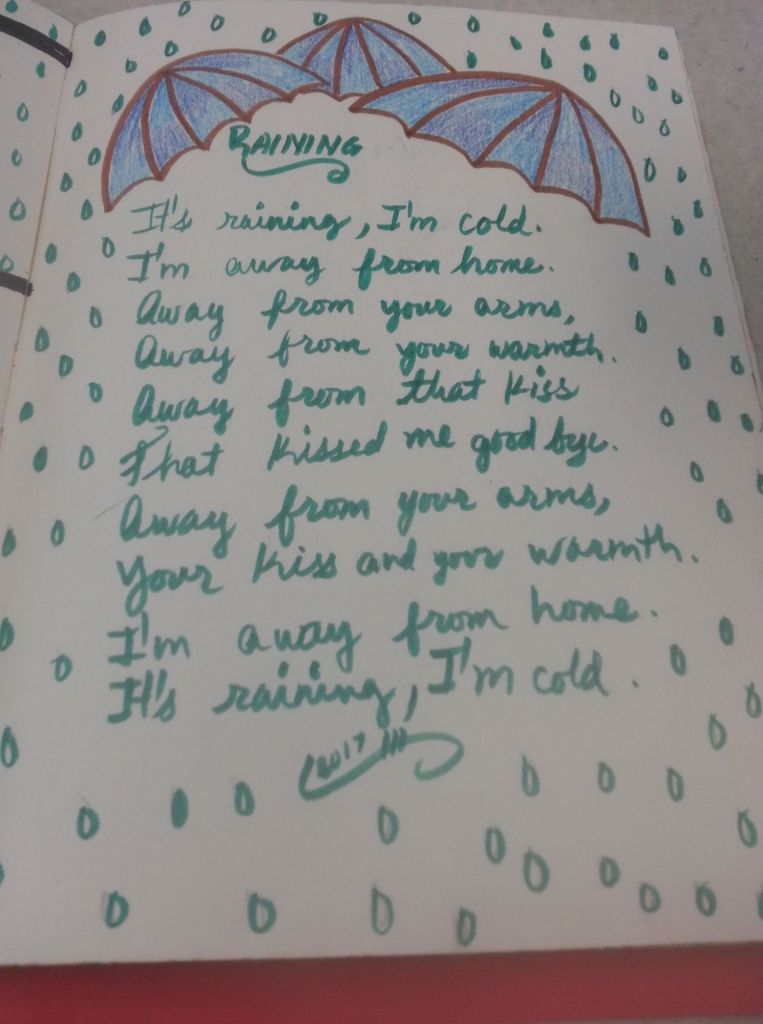 RAINING
It's raining, I'm cold.
I'm away from home.
Away from your arms,
Away from your warmth.
Away from that kiss
That kissed me good bye.
Away from your arms,
Your kiss and your warmth.
I'm away from home.
It's raining, I'm cold.
2017